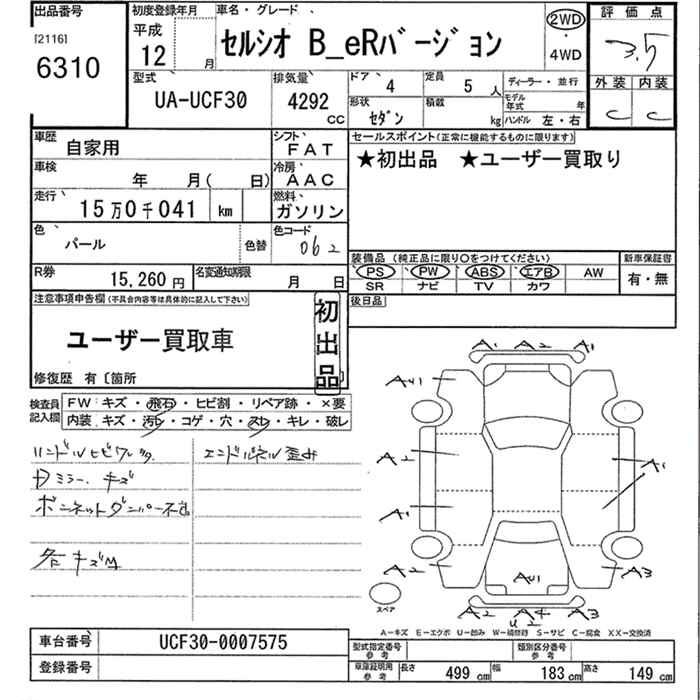 出品番号
[2116]
6310
初度登録年月
平成
12 月
車名・グレード、
セルシオ B_eRバージョン
2WD
・
4WD
評価点
3.5
外装 内装
C C
型式
UA-UCF30
排気量
4292
CC
ドア 4
形状
セダン
定員 5 人
積載 kg
ディーラー・並行
モデル年式 年
ハンドル 左・右
車歴
自家用
シフト
FAT
車検
年 月( 日)
冷房
AAC
走行
15万0千041 km
燃料
ガソリン
色
パール
色替
色コード
062
R券
15,260円
名変通知期限
月 日
セールスポイント(正常に機能するものに限ります)
★初出品 ★ユーザー買取り
装備品(純正品に限り○をつけてください)
PS PW ABS エアB AW
SR ナビ TV カワ
新車保証書
有・無
後日品
注意事項申告欄(不具合内容等は具体的に記入して下さい)
ユーザー買取車
初出品
修復歴 有〔箇所
検査員
記入欄
FW:キズ・飛石・ヒビ割・リペア跡・×要
内装:キズ・汚レ・コゲ・穴・スレ・キレ・破レ
ハンドルヒビワレ
エンドパネル歪み
Dミラーキズ
ボンネットダンパー不良
各キズM
A1 A2 A1
AU1
A2
A1
A1
A2
A3
AU1
A2 A4 A3
U2
スペア
A-キズ E-エクボ U-凹み W-補修跡 S-サビ C-腐食 XX-交換済
車台番号
UCF30-0007575
登録番号
型式指定番号
参考
類別区分番号
参考
車庫証明用
参考
長さ 499 cm 幅 183 cm 高さ 149 cm